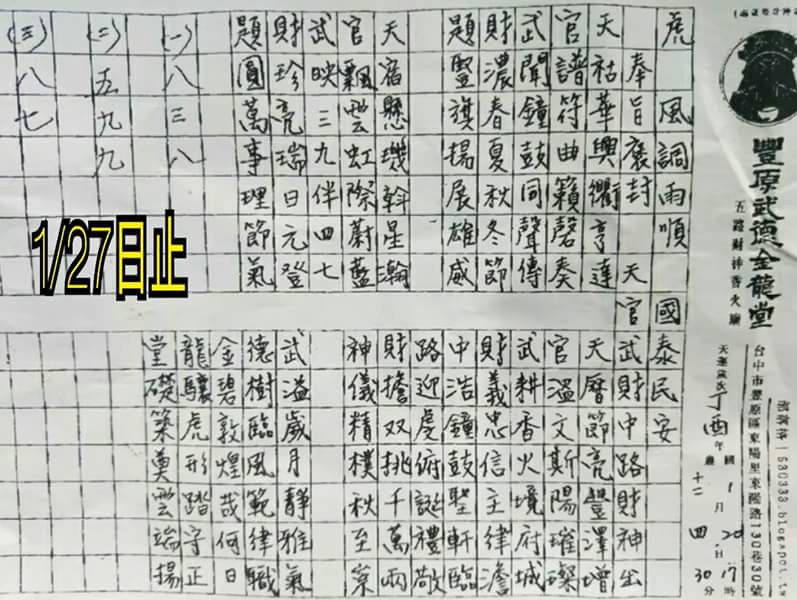 豐原武德金龍堂
五路財神香火廟
台中市豐原區東陽里東陽路130巷30號
530333.blogspot.tw
天運歲次丁酉年
1月20日17時30分
十二 四
虎風調雨順國泰民安
奉旨褒封天官武財中路財神出
天祜華興衢亨達
官譜符曲籟磬奏
武聞鐘鼓同聲傳
財濃春夏秋冬節
題豎旗揚展雄威
天宿懸璣斡星瀚
官飄雲虹際蔚藍
武映三九伴四七
財珍亮瑞日元登
題圓萬事理節氣
(一)八三八
(二)五九九
(三)八七
1/27日止
天曆節亮豐澤增
官溫文斯陽璀璨
武耕香火境府城
財義忠信主律澹
中浩鐘鼓聖軒臨
路迎虔俯誕禮敬
財擔双挑千萬兩
神儀精樸秋至
武溢歲月靜雅氣
德樹臨風範律職
金碧敦煌哉何日
龍驤虎形踏守正
堂礎築奠雲端揚